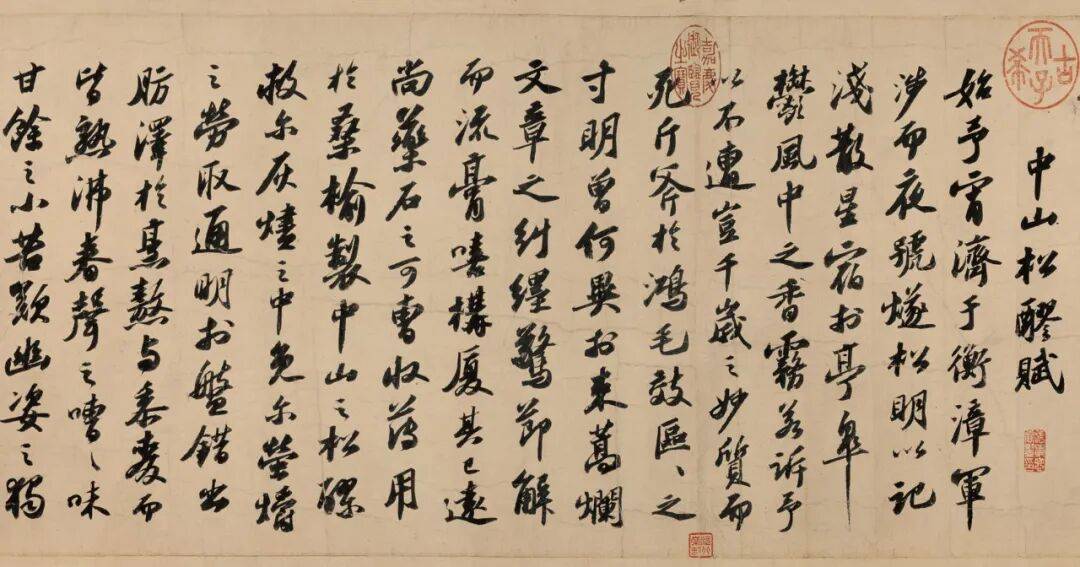 古希天子
中山松醪賦
始予宵濟于衡漳軍
涉而夜號燧松明以記
淺散星宿於亭皋
鬱風中之香霧若訴予
以不遭豈千歲之妙質而
死斤斧於鴻毛效區〻之
寸明曾何異於束蒿爛
文章之糾纆驚節解
而流膏嘻構廈其已遠
尚藥石之可曹收薄用
於桑榆製中山之松醪
救尔灰燼之中免尔螢爝
之勞取通明於盤錯出
肪澤於烹熬与黍麥而
皆熟沸舂聲之嘈〻味
甘餘之小苦歎幽姿之獨
嘉慶御覽之寶